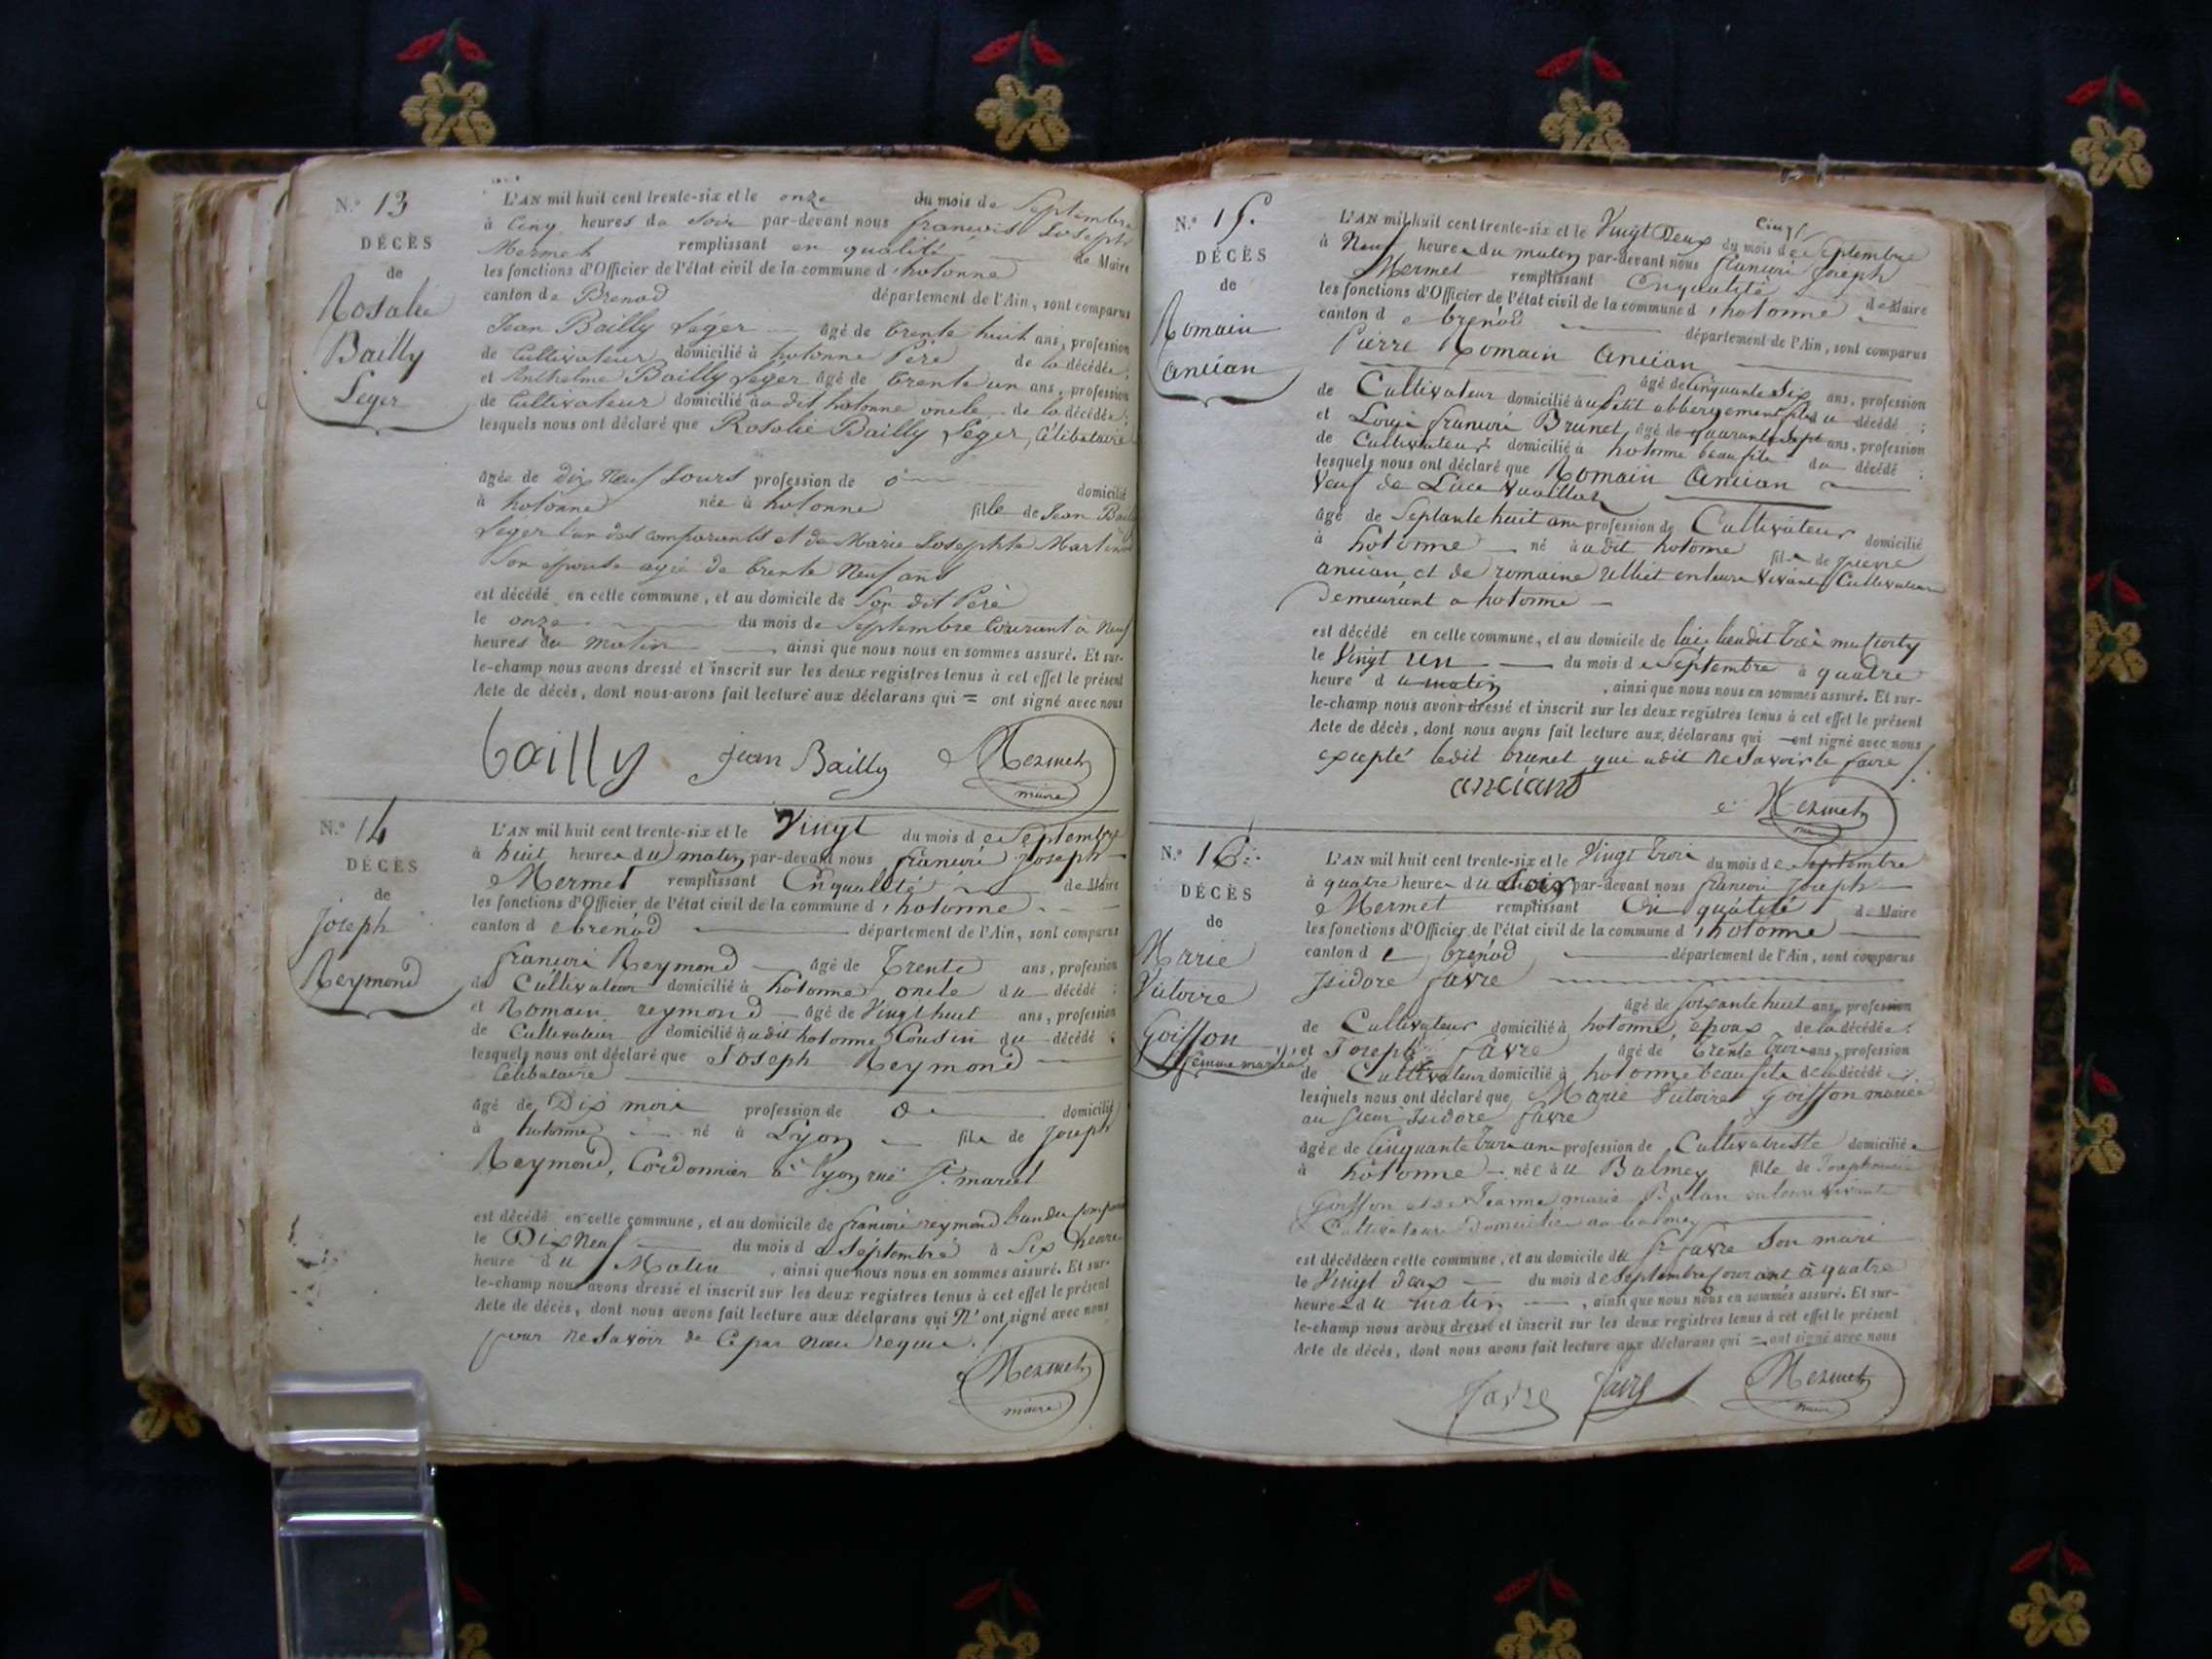 N.º 13
DÉCÈS
de
Rosalie
Bailly
Leger
L'AN mil huit cent trente-six et le onze du mois de Septembre
à Cinq heures du Soir par-devant nous françois Joseph
Mermet remplissant en qualité de Maire
les fonctions d'Officier de l'état civil de la commune d'hotonne
canton de Brenod département de l'Ain, sont comparus
Jean Bailly Léger âgé de trente huit ans, profession
de Cultivateur domicilié à hotonne Père de la décédée;
et Anthelme Bailly Léger âgé de trente un ans, profession
de Cultivateur domicilié au dit hotonne oncle de la décédée;
lesquels nous ont déclaré que Rosalie Bailly Leger, Célibataire
âgée de dix neuf Jours profession de domicilié
à hotonne née à hotonne fille de Jean Bailly
Leger l'un des comparants et de Marie Josephte
Son épouse agée de trente Neuf ans
est décédé en cette commune, et au domicile de Son dit Père
le onze du mois de Septembre Courant à Neuf
heures du matin ainsi que nous nous en sommes assuré. Et sur-
le-champ nous avons dressé et inscrit sur les deux registres tenus à cet effet le présent
Acte de décès, dont nous avons fait lecture aux déclarans qui = ont signé avec nous
bailly jean Bailly Mermet
maire
N.º 14
DÉCÈS
de
joseph
Reymond
L'AN mil huit cent trente-six et le Vingt du mois de Septembre
à huit heures du matin par-devant nous françois joseph
Mermet remplissant En qualité de Maire
les fonctions d'Officier de l'état civil de la commune d'hotonne
canton de brenod département de l'Ain, sont comparus
françois Reymond âgé de Trente ans, profession
de Cultivateur domicilié à hotonne oncle du décédé;
et Romain reymond âgé de Vingt huit ans, profession
de Cultivateur domicilié audit hotonne Cousin du décédé;
lesquels nous ont déclaré que Joseph Reymond
Célibataire
âgé de Dix mois profession de domicilié
à hotonne né à Lyon fils de joseph
Reymond, Cordonnier à lyon rue St. marcel
est décédé en cette commune, et au domicile de françois reymond l'un des
le Dix Neuf du mois de Septembre à Six heure
heure du Matin, ainsi que nous nous en sommes assuré. Et sur-
le-champ nous avons dressé et inscrit sur les deux registres tenus à cet effet le présent
Acte de décès, dont nous avons fait lecture aux déclarans qui N'ont signé avec nous
pour ne Savoir de Ce par nous requis.
Mermet
maire
N.º 15.
DÉCÈS
de
Romain
ancian
L'AN mil huit cent trente-six et le Vingt Deux du mois de Septembre
à Neuf heures du matin par-devant nous françois joseph
Mermet remplissant En qualité de Maire
les fonctions d'Officier de l'état civil de la commune d'hotonne
canton de brenod département de l'Ain, sont comparus
Pierre Romain ancian
âgé de Cinquante Six ans, profession
de Cultivateur domicilié au petit abbergement fils du décédé;
et Louis françois Brunet, âgé de quarante Sept ans, profession
de Cultivateur domicilié à hotonne beau fils du décédé;
lesquels nous ont déclaré que Romain Ancian
Veuf de
âgé de Septante huit ans profession de Cultivateur domicilié
à hotonne né audit hotonne fils de pierre
ancian et de romaine en leurs vivants Cultivateurs
Demeurant a hotonne
est décédé en cette commune, et au domicile de
le Vingt un du mois de Septembre à quatre
heure du matin, ainsi que nous nous en sommes assuré. Et sur-
le-champ nous avons dressé et inscrit sur les deux registres tenus à cet effet le présent
Acte de décès, dont nous avons fait lecture aux déclarans qui ont signé avec nous
excepté ledit brunet qui a dit ne Savoir le faire
anciant
Mermet
N.º 16
DÉCÈS
de
Marie
Victoire
Goiffon
femme mariée
L'AN mil huit cent trente-six et le Vingt trois du mois de Septembre
à quatre heures du Soir par-devant nous françois joseph
Mermet remplissant En qualité de Maire
les fonctions d'Officier de l'état civil de la commune d'hotonne
canton de brenod département de l'Ain, sont comparus
Isidore favre
âgé de soixante huit ans, profession
de Cultivateur domicilié à hotonne, époux de la décédée;
et Joseph favre âgé de trente trois ans, profession
de Cultivateur domicilié à hotonne beau fils de la décédée
lesquels nous ont déclaré que Marie Victoire Goiffon mariée
au Sieur Isidore favre
âgée de Cinquante trois ans profession de Cultivatrice domiciliée
à hotonne née au Balmey fille de
Goiffon et de Jeanne marie en leurs vivants
Cultivateurs au balmey
est décédée en cette commune, et au domicile du Sr. favre Son mari
le Vingt deux du mois de Septembre Courant à quatre
heures du matin, ainsi que nous nous en sommes assuré. Et sur-
le-champ nous avons dressé et inscrit sur les deux registres tenus à cet effet le présent
Acte de décès, dont nous avons fait lecture aux déclarans qui = ont signé avec nous
favre favre Mermet
maire